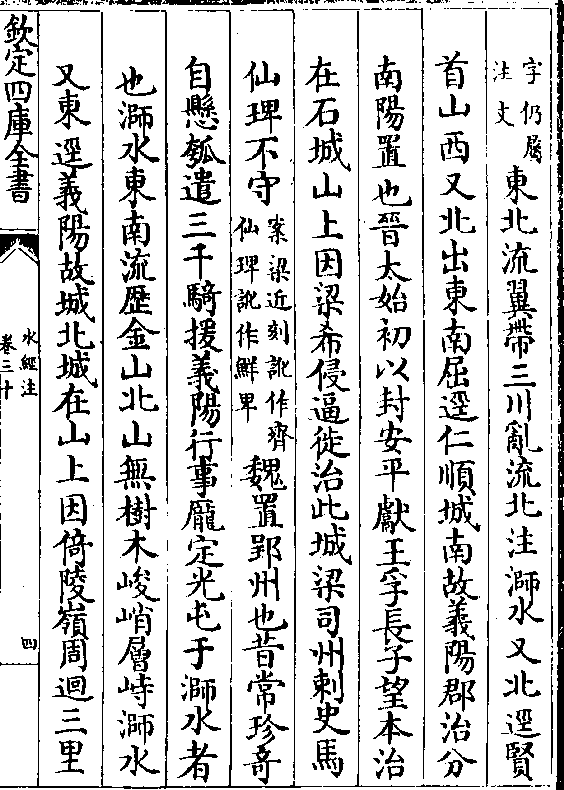 字仍屬
注文
東北流翼帶三川亂流北注溮水又北逕賢
首山西又北出東南屈逕仁順城南故義陽郡治分
南陽置也晉太始初以封安平獻王孚長子望本治
在石城山上因梁希侵逼徙治此城梁司州刺史馬
仙琕不守
案梁近刻訛作齊
仙琕訛作鮮卑
魏置郢州也昔常珍奇
自懸瓠遣三千騎援義陽行事龐定光屯于溮水者
也溮水東南流歷金山北山無樹木峻峭層峙溮水
又東逕義陽故城北城在山上因倚陵嶺周迴三里
欽定四庫全書
水經注
卷三十
四